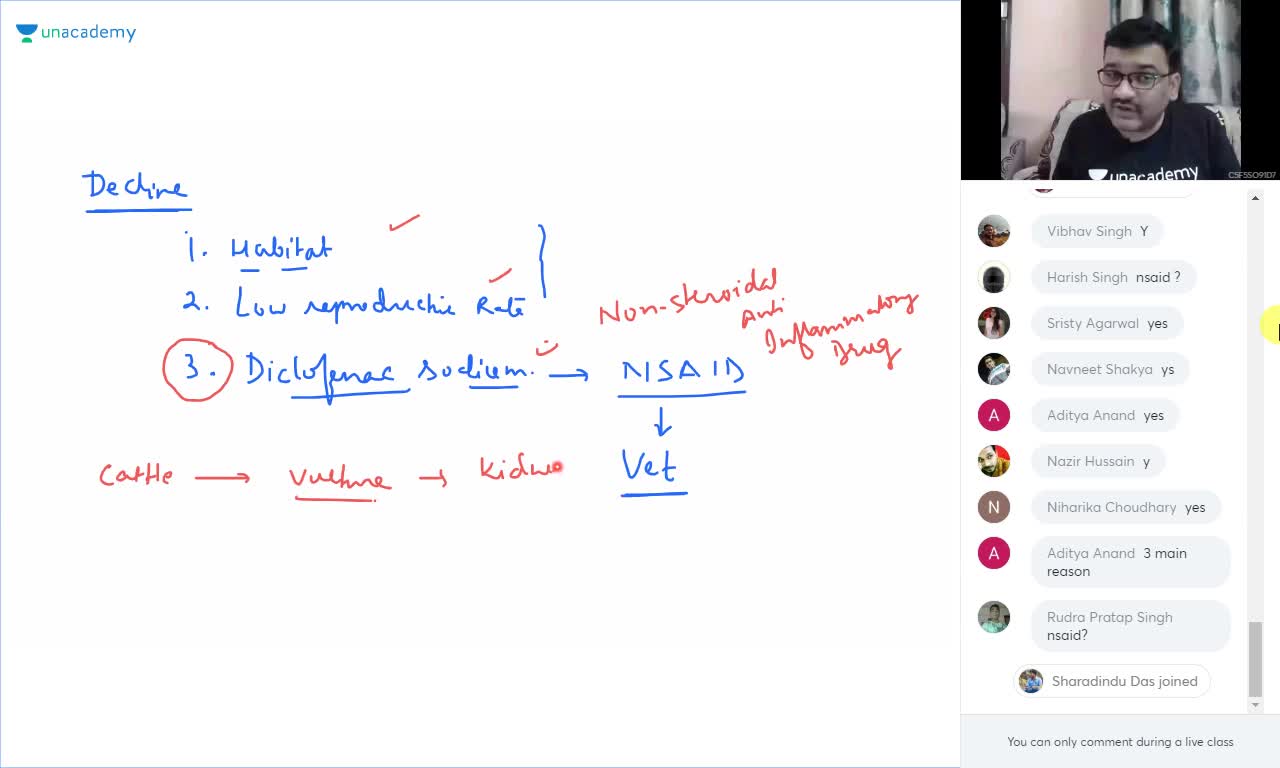 unacademy
Decline
1. Habitat
2. Low reproductive Rate
3. Diclofenac sodium. → NSAID
Non-steroidal
Anti
Inflammatory
Drug
Vet
Cattle → Vulture → Kidne
unacademy
CSFSSO91D7
Vibhav Singh Y
Harish Singh nsaid ?
Sristy Agarwal yes
Navneet Shakya ys
A Aditya Anand yes
Nazir Hussain y
N Niharika Choudhary yes
A Aditya Anand 3 main
reason
Rudra Pratap Singh
nsaid?
Sharadindu Das joined
You can only comment during a live class